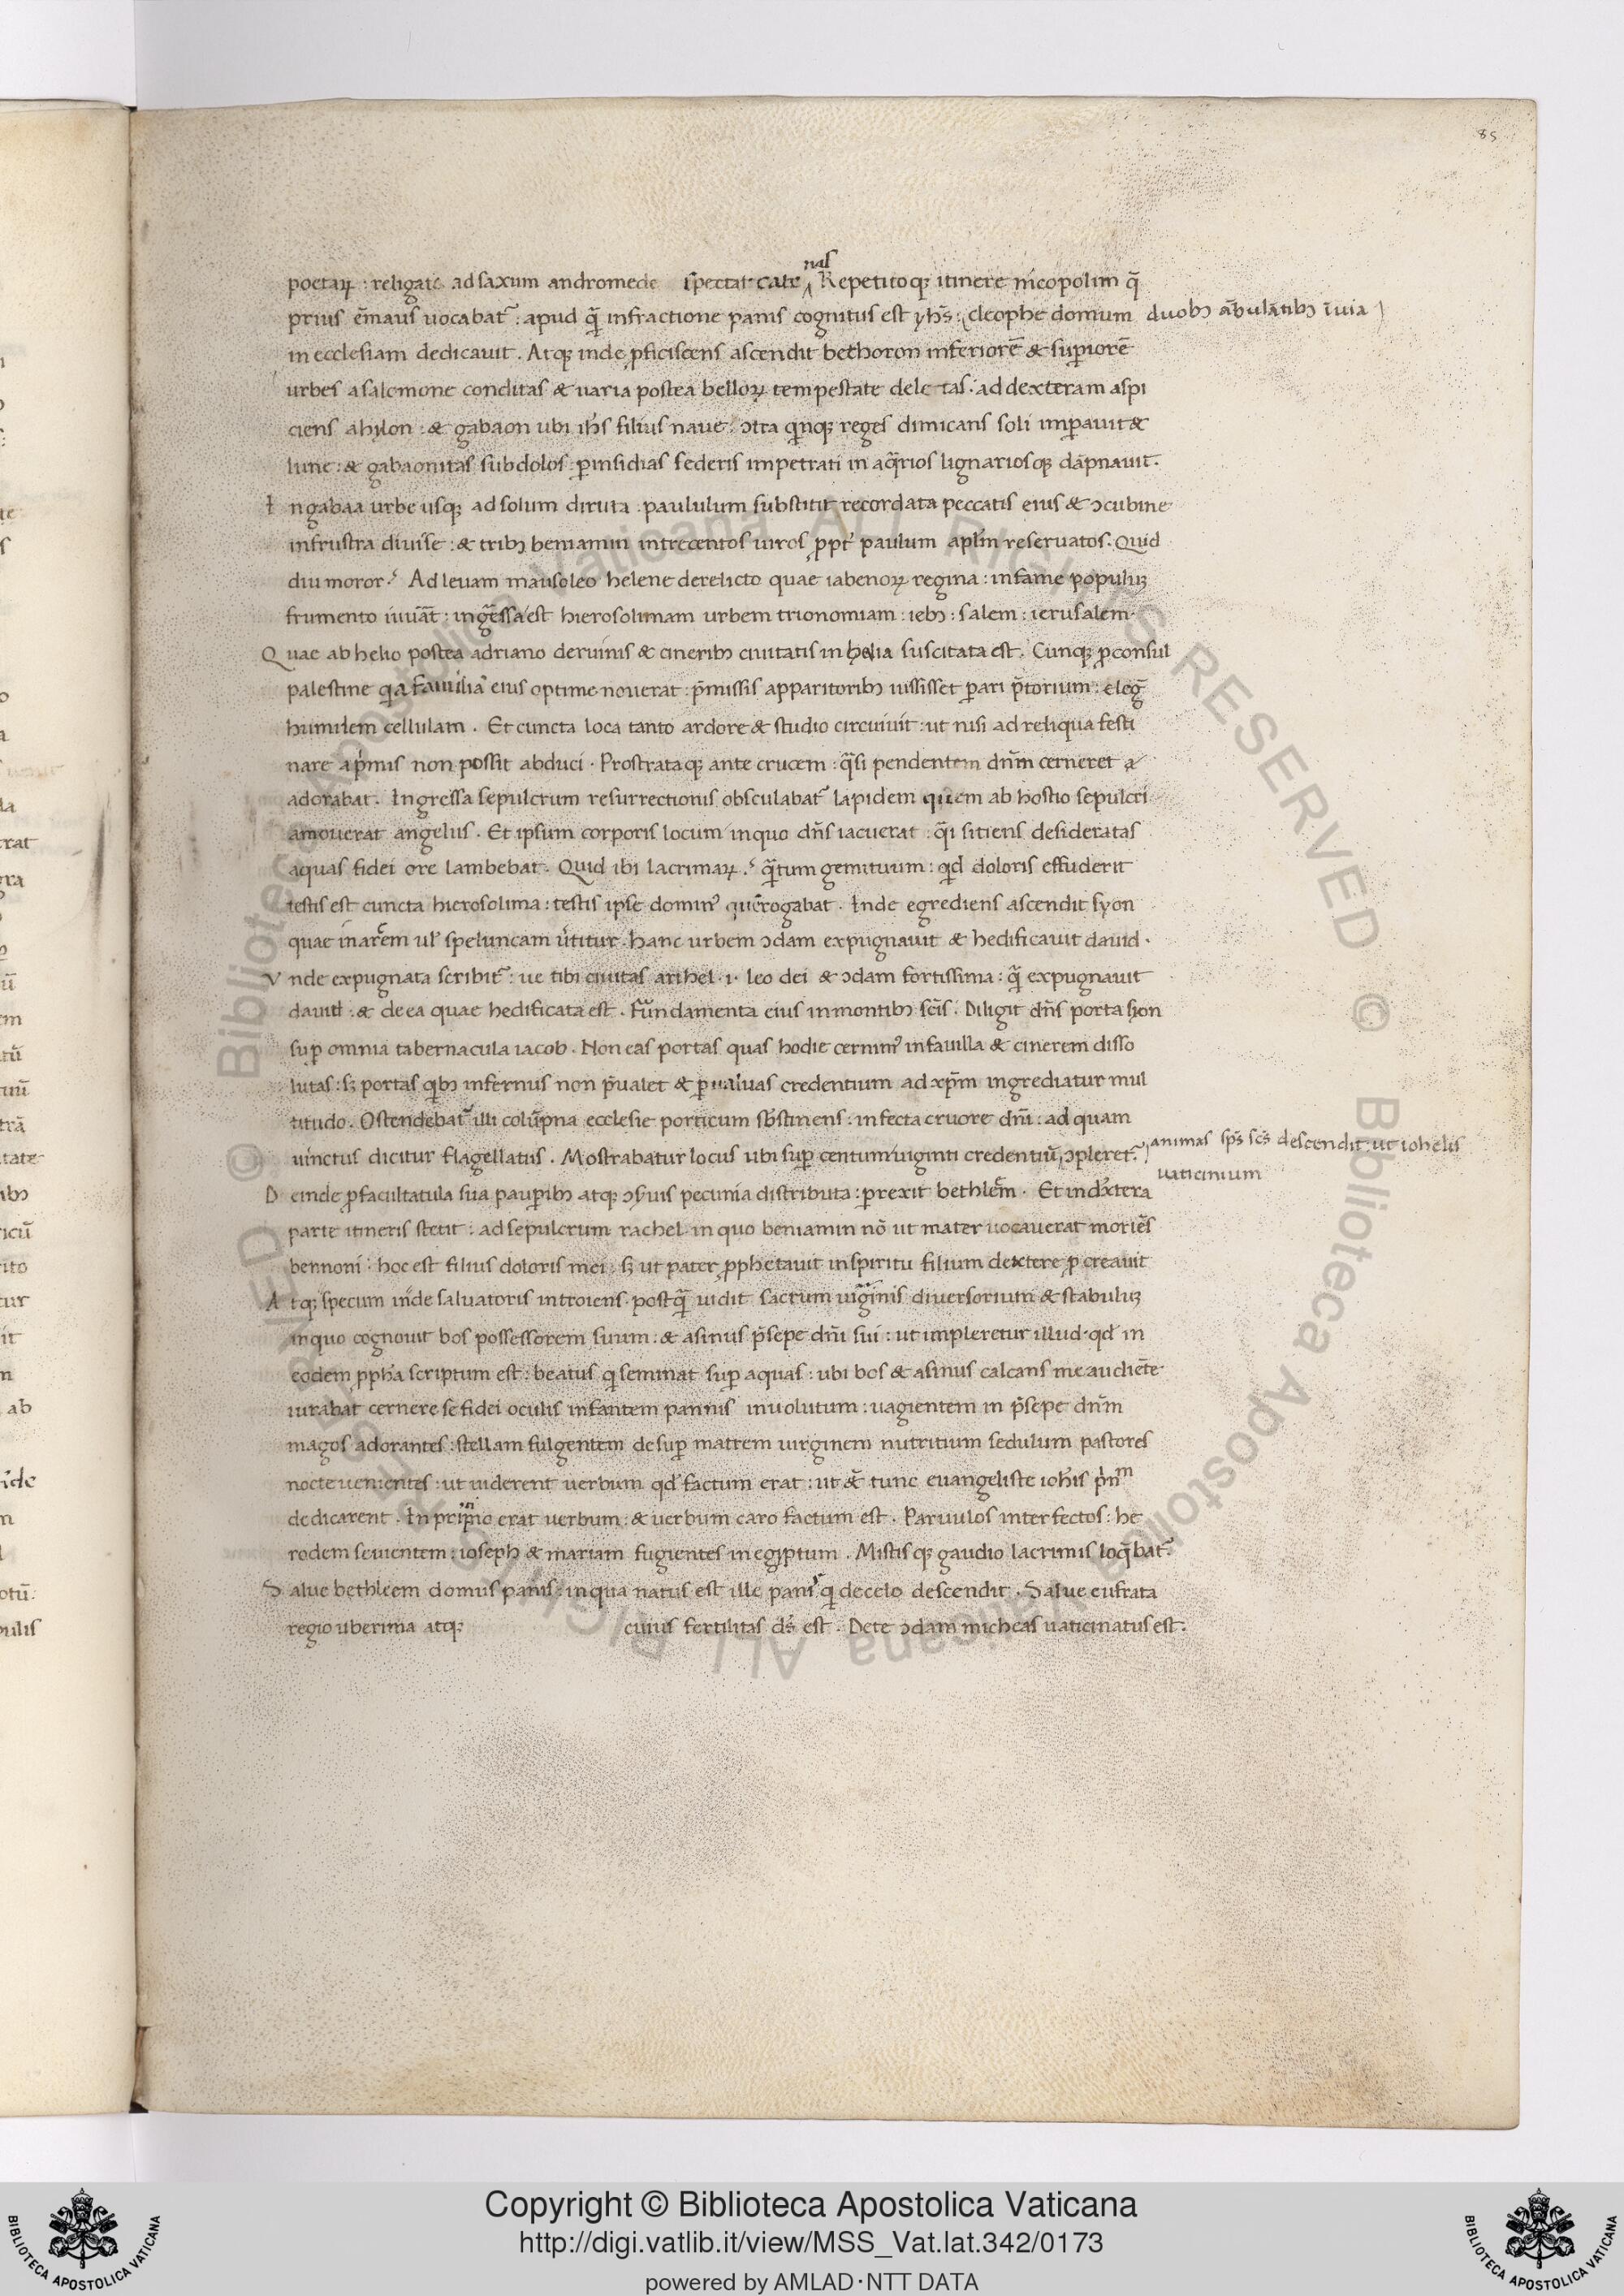 85
poetaꝝ : religate ad saxum andromede spectat catenas Repetitoqꝫ itinere nicopolim q̄
prius ēmaus uocabatᷣ : apud q̄ infractione panis cognitus est yhs̄ : cleophe domum duobꝫ ābulātibꝫ ī uia
in ecclesiam dedicauit . Atqꝫ inde ꝓficiscens ascendit bethoron inferiorē & suꝑiorē
urbes a salomone conditas & uaria postea belloꝝ tempestate deletas . ad dexteram aspi
ciens ahylon : & gabaon ubi ihs̄ filius naue : ↄtra qinqꝫ reges dimicans soli imꝑauit &
lune : & gabaonitas subdolos : ꝑ insidias federis impetrati in aq̄rios lignariosqꝫ dāpnauit .
I n gabaa urbe usqꝫ ad solum diruta : paululum substitit recordata peccatis eius & ↄcubine
infrustra diuise : & tribꝫ beniamin in trecentos uiros ꝓpt paulum aplm̄ reseruatos . Quid
diu moror . Ad leuam mausoleo helene derelicto quae iabenoꝝ regina : infame populuꝫ
frumento iuuāt : ingressa est hierosolimam urbem trionomiam : iebꝫ : salem : ierusalem .
Q uae ab helio postea adriano de ruinis & cineribꝫ ciuitatis in helia suscitata est . Cunqꝫ ꝓconsul
palestine qia familiā eius optime nouerat : p̄missis apparitoribꝫ iussisset ꝑari p̄torium : eleḡ
humilem cellulam . Et cuncta loca tanto ardore & studio circuiuit : ut nisi ad reliqua festi
nare a pⁱmis non possit abduci . Prostrataqꝫ ante crucem : q̄si pendentem dn̄m cerneret
adorabat . Ingressa sepulcrum resurrectionis obsculabatᷣ lapidem quem ab hostio sepulcri
amouerat angelus . Et ipsum corporis locum in quo dn̄s iacuerat : q̄i sitiens desideratas
aquas fidei ore lambebat . Quid ibi lacrimaꝝ . q̄tum gemituum : qid doloris effuderit
testis est cuncta hierosolima : testis ipse dominꝰ quē rogabat . Inde egrediens ascendit syon
quae in arcem ul speluncam ūtitur . hanc urbem ↄdam expugnauit & hedificauit dauid .
V nde expugnata scribitᷣ : ue tibi ciuitas arihel . i . leo dei & ↄdam fortissima : q̄ expugnauit
dauid : & de ea quae hedificata est . Fundamenta eius in montibꝫ scīs . Diligit dn̄s porta syon
suꝑ omnia tabernacula iacob . Non eas portas quas hodie cernimꝰ in fauilla & cinerem disso
lutas : sꝫ portas qibꝫ infernus non p̄ualet & ꝑ ualuas credentium ad xp̄m ingrediatur mul
titudo . Ostendebatᷣ illi colūpna ecclesie porticum sbstinens : infecta cruore dn̄i : ad quam
uinctus dicitur flagellatus . Mostrabatur locus ubi suꝑ centum uiginti credentiū ↄpleretᷣ animas sps̄ scs̄ descendit : ut iohelis
uaticinium
D einde ꝓ facultatula sua pauꝑibꝫ atqꝫ ↄseruis pecunia distributa : ꝑrexit bethlem̄ . Et in dextera
parte itineris stetit : ad sepulcrum rachel in quo beniamin nō ut mater uocauerat moriēs
bennoni : hoc est filius doloris mei : sꝫ ut pater ꝓphetauit in spiritu filium dextere ꝓcreauit
A tqꝫ specum inde saluatoris introiens . postq̄ uidit sacrum uirginis diuersorium & stabuluꝫ
in quo cognouit bos possessorem suum : & asinus p̄sepe dn̄i sui : ut impleretur illud . qd in
eodem ꝓpha scriptum est : beatus qi seminat suꝑ aquas : ubi bos & asinus calcans me audiēte
iurabat cernere se fidei oculis infantem pannis inuolutum : uagientem in p̄sepe dn̄m
magos adorantes : stellam fulgentem desuꝑ matrem uirginem nutritium sedulum pastores
nocte uenientes : ut uiderent uerbum qd factum erat : ut & tunc euangeliste iohis
dedicarent . In principio erat uerbum : & uerbum caro factum est . Paruulos interfectos : he
rodem seuientem : ioseph & mariam fugientes in egiptum . Mistisqꝫ gaudio lacrimis loq̄batᷣ
S alue bethleem domus panis : in qua natus est ille panis qi de celo descendit . Salue eufrata
regio uberima atqꝫ cuius fertilitas ds̄ est . De te ↄdam micheas uaticinatus est .
Copyright © Biblioteca Apostolica Vaticana
http://digi.vatlib.it/view/MSS_Vat.lat.342/0173
powered by AMLAD·NTT DATA
BIBLIOTECA APOSTOLICA VATICANA
BIBLIOTECA APOSTOLICA VATICANA
© Biblioteca Apostolica Vaticana ALL RIGHTS RESERVED © Biblioteca Apostolica Vaticana ALL RIGHTS RESERVED